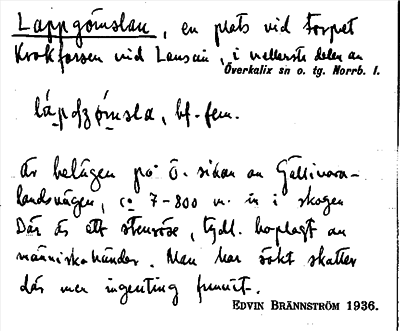 Lappgömslan, en plats vid torpet
Krokforsen vid Lansån, i nellerste delen av
Överkalix sn o. tg. Norrb. l.
bf. fem.
Är belägen på ö. sidan av Gällivare-
landsvägen, ca 7-800 m. in i skogen
Där är ett stenröse, tydl. hoplagt av
människohänder. Man har sökt skatter
där men ingenting funnit.
EDVIN BRÄNNSTRÖM 1936.